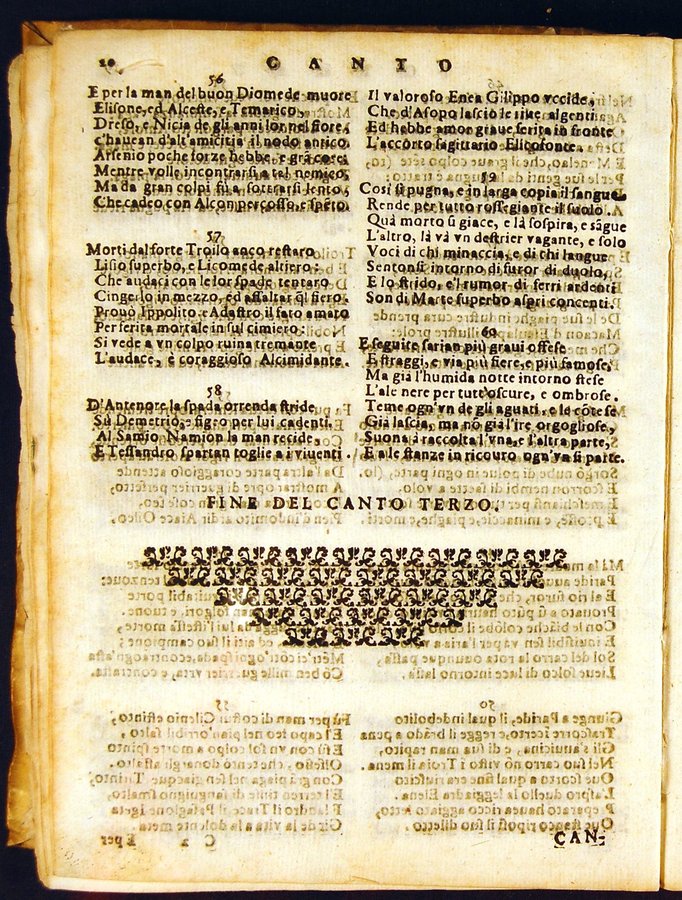 20 CANTO
56
E per la man del buon Diomede muore
Elisone, ed Alceste, e Temarico
Dreso, e Nicia de gli anni lor nel fiore,
c'hauean d'alt'amicitia il nodo antico
Arsenio poche forze hebbe, e grā core;
Mentre volle incontrarsi a tal nemico,
Ma da gran colpi fù a, lento,
Che cadeo con Alcon percosso, e spēto
57
Morti dal forte Troilo anco restaro
Lisio superbo, e Licomede altiero:
Che audaci con le lor spade tentaro
Cingerlo in mezzo, ed assaltar q̃l fiero
Prouò Ippolito, e Adastro il fato amaro
Per ferita mortale in sul cimiero:
Si vede a vn colpo ruina tremante
L'audace, e coraggioso Alcimidante.
58
D'Antenore la spada orrenda stride
Sù Demetrio, e figro per lui cadenti.
Al Samio Namion la man recide,
E Tessandro spartan toglie a i viuenti.
Il valoroso Enea Gilippo vccide,
Che d'Asopo lasciò le riue algenti
Ed hebbe amor giaue ferita in fronte
L'accorto sagittario Elicofonte.
59
Così si pugna, e in larga copia il sangue
Rende per tutto rosseggiante il suolo.
Quà morto si giace, e là sospira, e sāgue
L'altro, là và vn destrier vagante, e solo
Voci di chi minaccia, e di chi langue
Sentonsi intorno di furor di duolo,
E lo strido, e'l rumor di ferri ardenti
Son di Marte superbo aspri concenti.
60
E seguite sarian più graui offese
E straggi, e via più fiere, e più famose,
Ma già l'humida notte intorno stese
L'ale nere per tutt'oscure, e ombrose.
Teme ogn'vn de gli aguati, e le cōtese
Già lascia, ma nō già l'ire orgogliose,
Suona à raccolta l'vna, e l'altra parte,
E a le stanze in ricouro ogn'va si parte.
FINE DEL CANTO TERZO.
CAN-